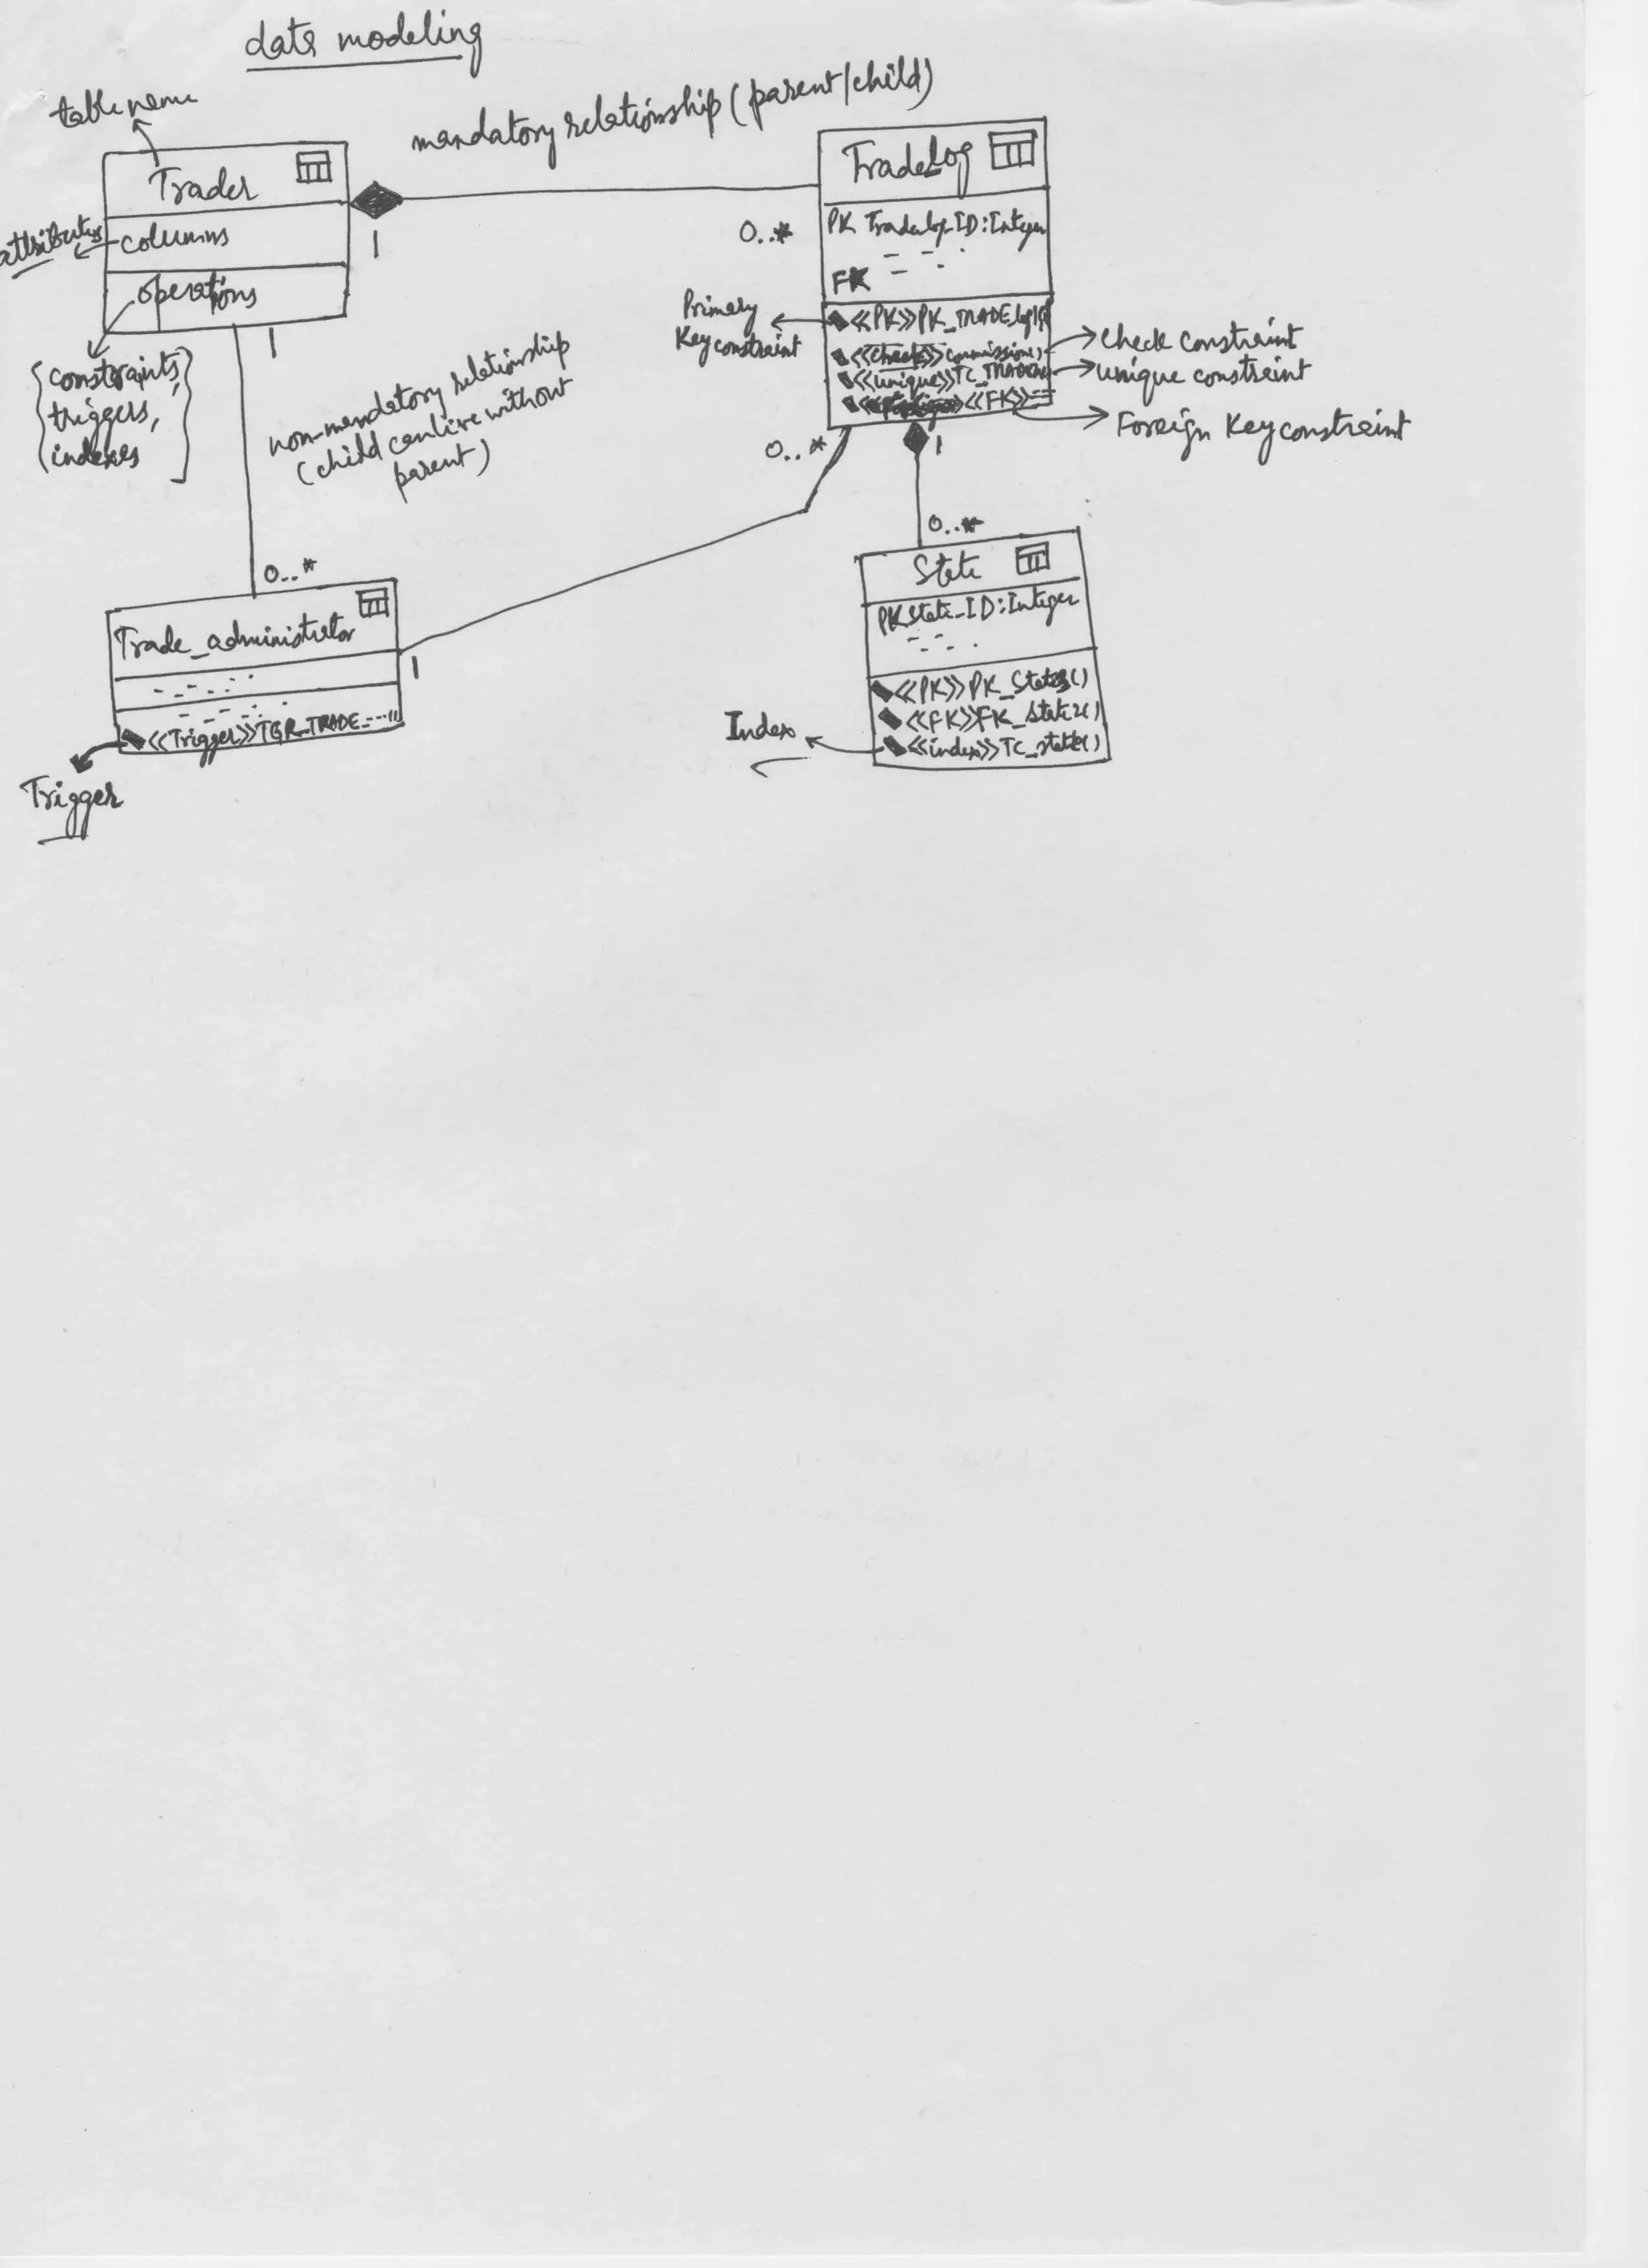 data modeling
table name
mandatory relationship (parent/child)
Trader
TradeLog
attributes
columns
1
0..*
PK Tradelog_ID:Integer
FK
operations
1
Primary
Key constraint
<<PK>>PK_TRADE
<<check>>commission()
check constraint
<<unique>>TC_TRADE
unique constraint
<<FK>>
Foreign Key constraint
constraints,
triggers,
indexes
non-mandatory relationship
(child can live without
parent)
0..*
1
0..*
0..*
State
PK State_ID:Integer
Trade_administrator
1
<<PK>>PK_State()
<<FK>>FK_State2()
Index
<<index>>TC_state()
<<Trigger>>TGR_TRADE
Trigger